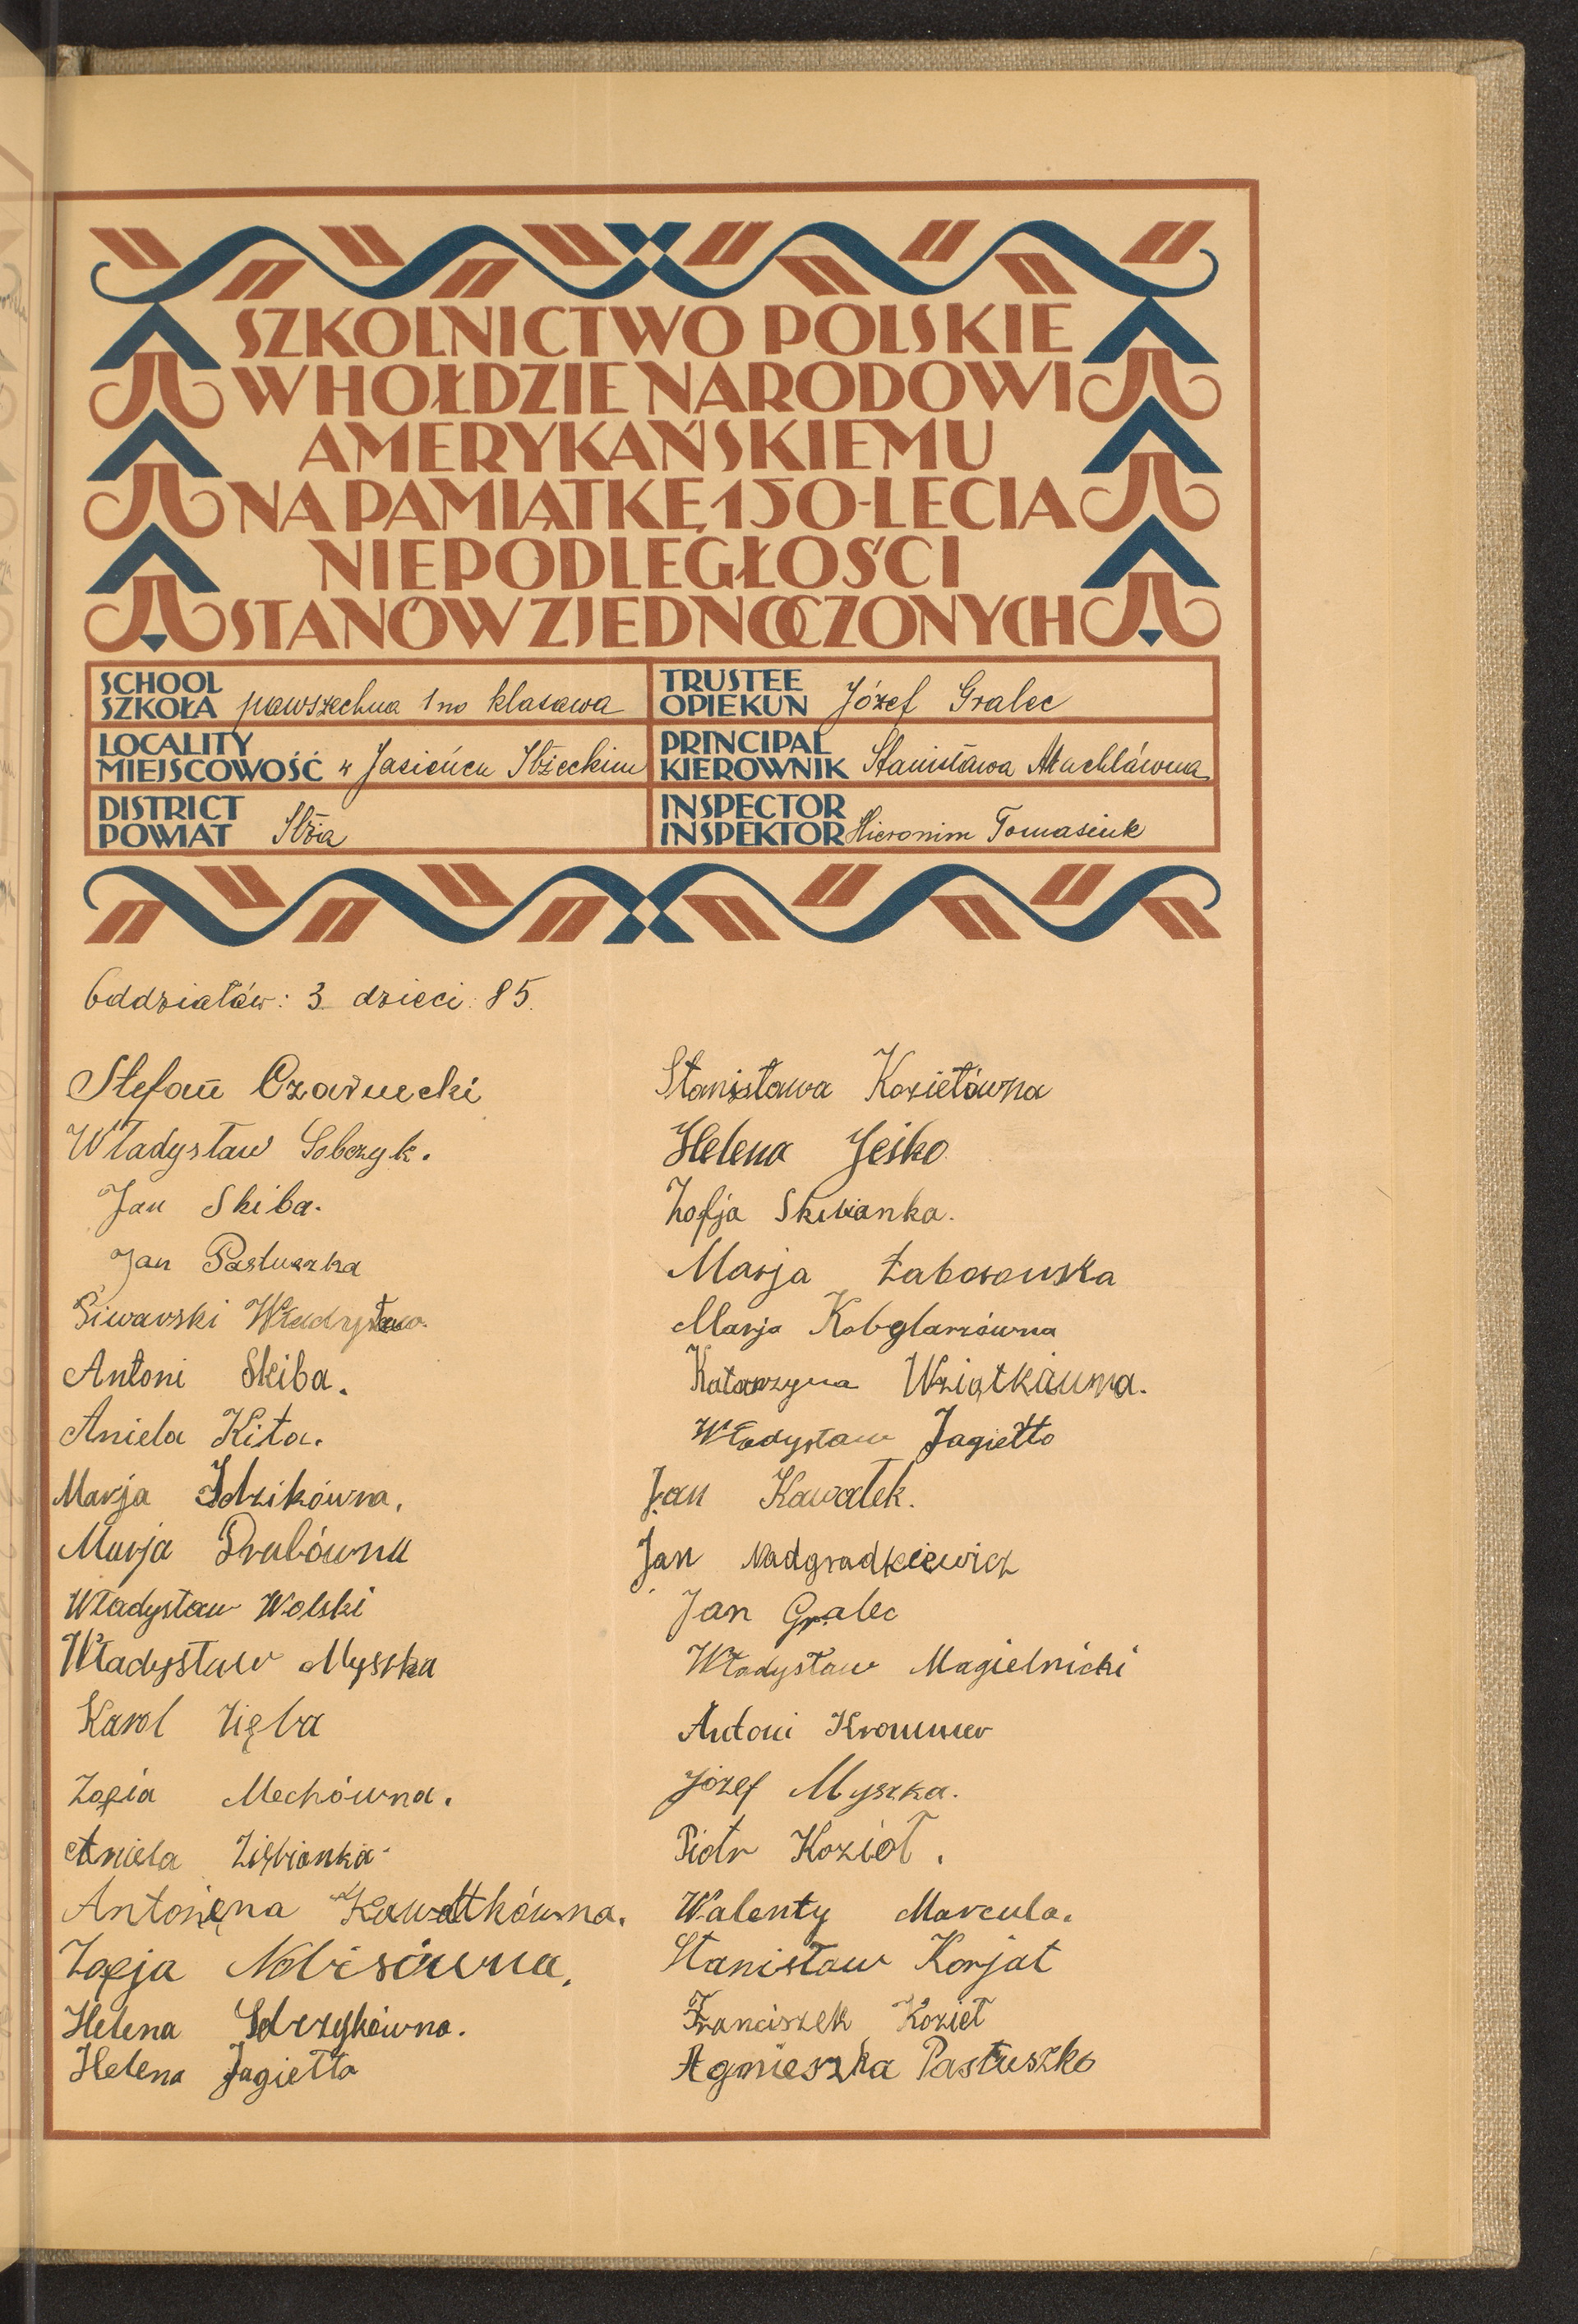 SZKOLNICTWO POLSKIE
W HOŁDZIE NARODOWI
AMERYKAŃSKIEMU
NA PAMIĄTKĘ 150-LECIA
NIEPODLEGŁOŚCI
STANÓW ZJEDNOCZONYCH
SCHOOL
SZKOŁA powszechna 1no klasowa
TRUSTEE
OPIEKUN Józef Gralec
LOCALITY
MIEJSCOWOŚĆ w Jasieńcu Iłżeckim
PRINCIPAL
KIEROWNIK Stanisława
DISTRICT
POWIAT Iłża
INSPECTOR
INSPEKTOR Hieronim Tomasiuk
Oddziałów: 3 dzieci 85.
Stefan Czarnecki
Władysław Sobczyk.
Jan Skiba.
Jan Pastuszka
Siwarski Władysław.
Antoni Skiba.
Aniela Kita.
Marja Idzikówna.
Marja Drabówna
Władysław Wolski
Władysław Myszka
Karol Zięba
Zofia Mechówna.
Aniela Ziębianka
Antonina Kawałkówna.
Zofja Nobisówna.
Helena Idrzykówna.
Helena Jagiełło
Stanisława Koziełówna
Helena Jeśko
Zofja Skibianka.
Marja Żaborowska
Marja Kobglarzówna
Katarzyna Wziątkówna.
Władysław Jagiełło
Jan Kawałek.
Jan Nadgradkiewicz
Jan Gralec
Władysław Magielnicki
Antoni Krommer
Józef Myszka.
Piotr Kozioł.
Walenty Marcula.
Stanisław Korjat
Franciszek Kozieł
Agnieszka Pastuszko